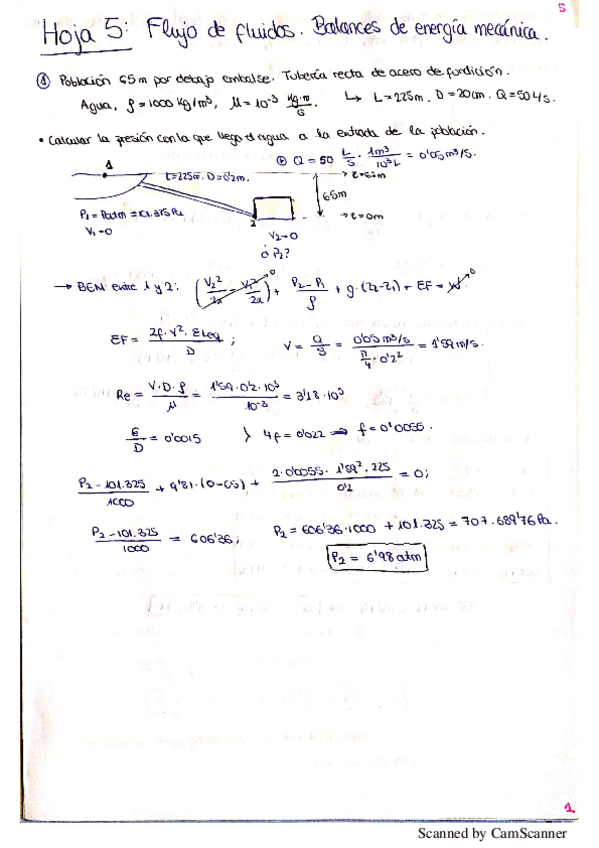 5
Hoja 5: Flujo de fluidos. Balances de energía mecánica.
① Población 65m por debajo embalse. Tubería recta de acero de fundición.
Agua, ρ = 1000 kg/m³, μ = 10⁻³ kg·m/s. ↳ L = 225m. D = 20cm. Q = 50 L/s.
• Calcular la presión con la que llega el agua a la entrada de la población.
Q = 50 L/s · 1m³/10³L = 0'05 m³/s.
1
L=225m. D=0'2m.
65m
P₁ = Patm = 101.325 Pa
V₁ = 0
→ z=0m
2
V₂ = 0
¿P₂?
→ BEM entre 1 y 2: (V₂²/2α − V₁²/2α)→0 + (P₂ − P₁)/ρ + g·(z₂−z₁) + EF = W→0
EF = 2f·V²·ΣLeq/D ; V = Q/S = 0'05 m³/s / (π/4 · 0'2²) = 1'59 m/s.
Re = V·D·ρ/μ = 1'59·0'2·10³/10⁻³ = 3'18·10⁵
ε/D = 0'0015 } 4f = 0'022 ⟹ f = 0'0055.
(P₂ − 101.325)/1000 + 9'81·(0−65) + 2·0'0055·1'59²·225/0'2 = 0;
(P₂ − 101.325)/1000 = 606'36; P₂ = 606'36·1000 + 101.325 = 707.689'76 Pa.
P₂ = 6'98 atm
1
Scanned by CamScanner